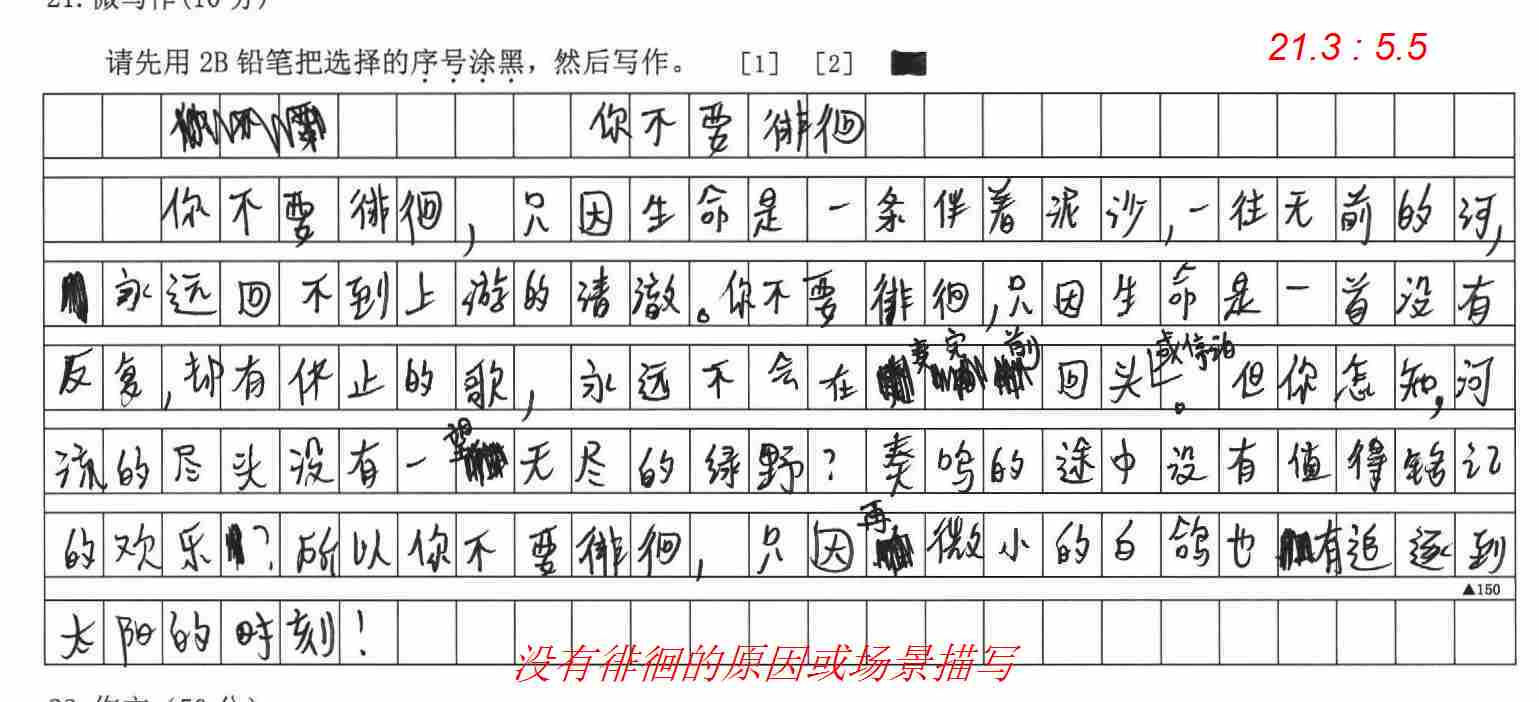 21.微写作(10分)
请先用 2B 铅笔把选择的序号涂黑，然后写作。 [1] [2]
21.3 : 5.5
你不要徘徊
你不要徘徊，只因生命是一条伴着泥沙，一往无前的河，
永远回不到上游的清澈。你不要徘徊，只因生命是一首没有
反复，却有休止的歌，永远不会在奏完前回头或停泊。但你怎知，河
流的尽头没有一望无尽的绿野？奏鸣的途中没有值得铭记
的欢乐？所以你不要徘徊，只因再微小的白鸽也有追逐到
▲150
太阳的时刻！
没有徘徊的原因或场景描写